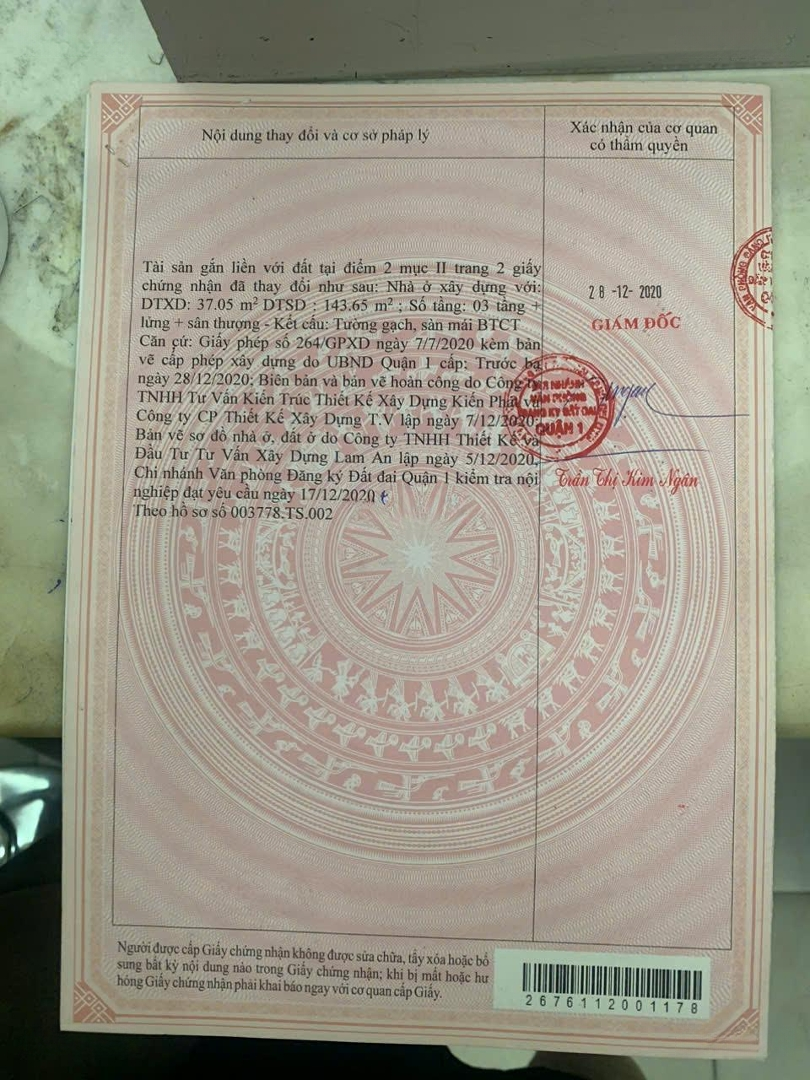 Nội dung thay đổi và cơ sở pháp lý
Xác nhận của cơ quan
có thẩm quyền
Tài sản gắn liền với đất tại điểm 2 mục II trang 2 giấy
chứng nhận đã thay đổi như sau: Nhà ở xây dựng với:
DTXD: 37.05 m² DTSD : 143.65 m² ; Số tầng: 03 tầng +
lửng + sân thượng - Kết cấu: Tường gạch, sàn mái BTCT
Căn cứ: Giấy phép số 264/GPXD ngày 7/7/2020 kèm bản
vẽ cấp phép xây dựng do UBND Quận 1 cấp: Trước bạ
ngày 28/12/2020; Biên bản và bản vẽ hoàn công do Công ty
TNHH Tư Vấn Kiến Trúc Thiết Kế Xây Dựng Kiến Phát và
Công ty CP Thiết Kế Xây Dựng T.V lập ngày 7/12/2020;
Bản vẽ sơ đồ nhà ở, đất ở do Công ty TNHH Thiết Kế Và
Đầu Tư Tư Vấn Xây Dựng Lam An lập ngày 5/12/2020,
Chi nhánh Văn phòng Đăng ký Đất đai Quận 1 kiểm tra nội
nghiệp đạt yêu cầu ngày 17/12/2020
Theo hồ sơ số 003778.TS.002
28 -12- 2020
GIÁM ĐỐC
CHI NHÁNH
VĂN PHÒNG
ĐĂNG KÝ ĐẤT ĐAI
QUẬN 1
Trần Thị Kim Ngân
Người được cấp Giấy chứng nhận không được sửa chữa, tẩy xóa hoặc bổ
sung bất kỳ nội dung nào trong Giấy chứng nhận; khi bị mất hoặc hư
hỏng Giấy chứng nhận phải khai báo ngay với cơ quan cấp Giấy.
2676112001178